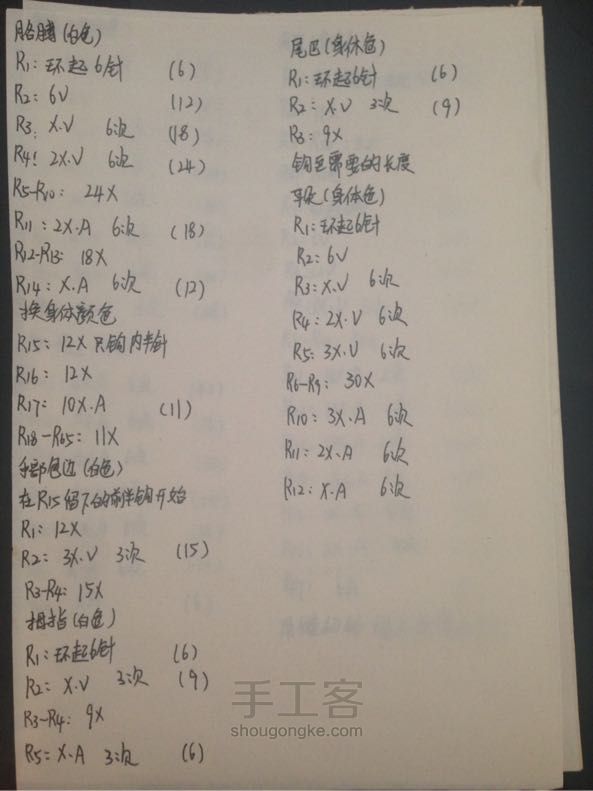 胳膊(白色)
R1: 环起6针 (6)
R2: 6V (12)
R3: X.V 6次 (18)
R4: 2X.V 6次 (24)
R5-R10: 24X
R11: 2X.A 6次 (18)
R12-R13: 18X
R14: X.A 6次 (12)
换身体颜色
R15= 12X 只钩内半针
R16: 12X
R17: 10X.A (11)
R18-R65: 11X
手部包边(白色)
在R15留下的前半钩开始
R1: 12X
R2= 3X.V 3次 (15)
R3-R4: 15X
拇指(白色)
R1: 环起6针 (6)
R2= X.V 3次 (9)
R3-R4: 9X
R5= X.A 3次 (6)
尾巴(身体色)
R1: 环起6针 (6)
R2= X.V 3次 (9)
R3: 9X
钩至需要的长度
耳朵(身体色)
R1: 环起6针
R2: 6V
R3= X.V 6次
R4: 2X.V 6次
R5: 3X.V 6次
R6-R9: 30X
R10: 3X.A 6次
R11: 2X.A 6次
R12: X.A 6次
手工客
shougongke.com